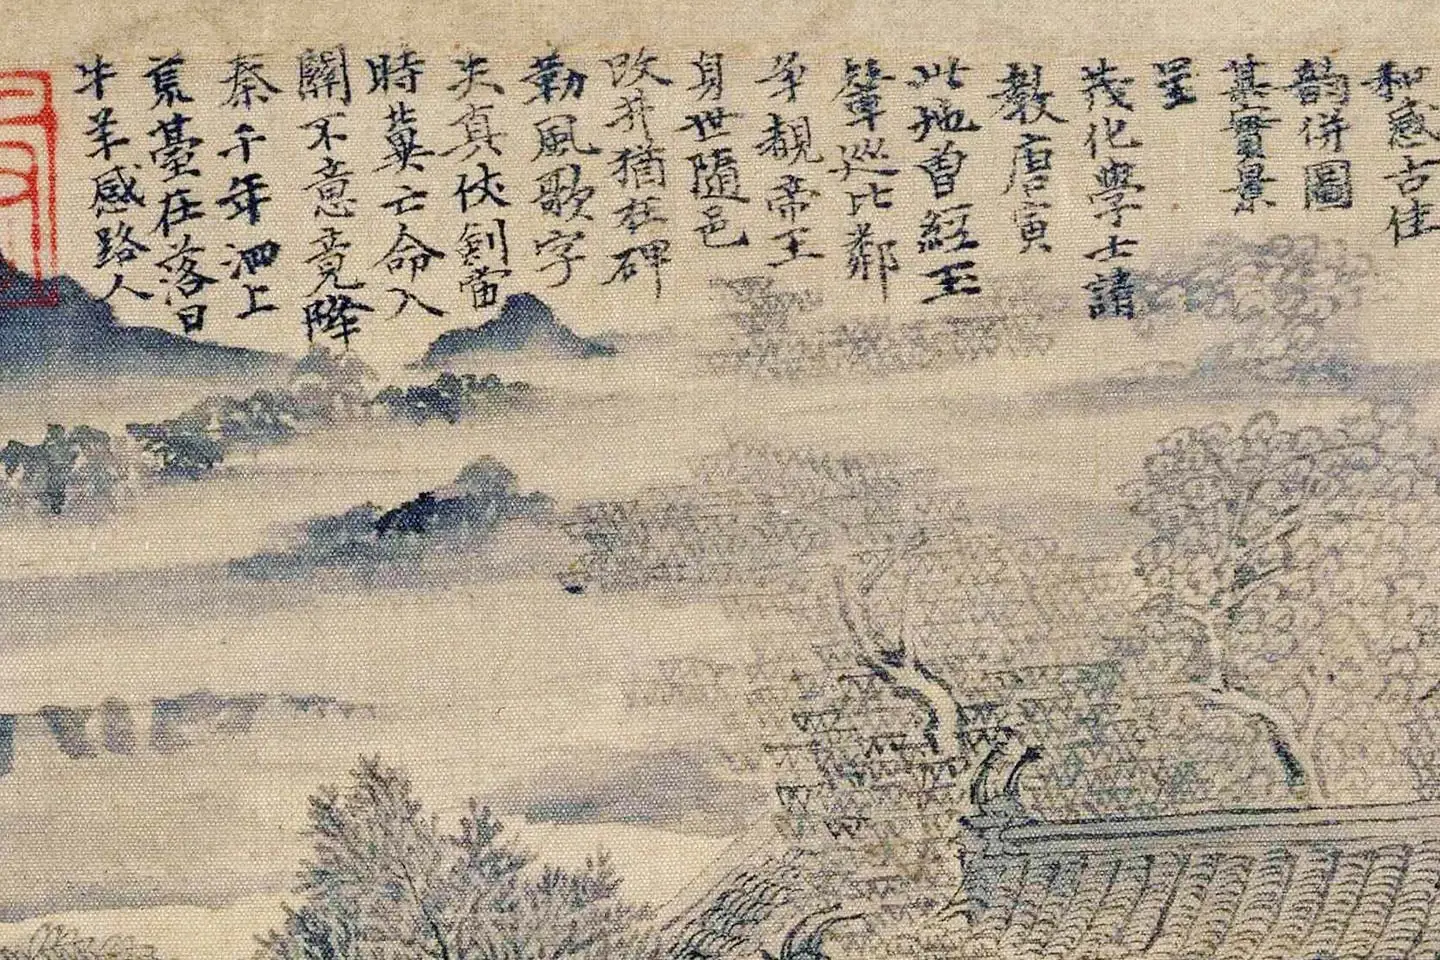 和感古佳
韵併圖
其實景
呈
茂化學士請
教唐寅
此地曾經王
輦巡比鄰
爭覩帝王
身世隨邑
改井猶在碑
勒風歌字
失真仗劍當
時冀亡命入
關不意竟降
秦千年泗上
荒臺在落日
牛羊感路人